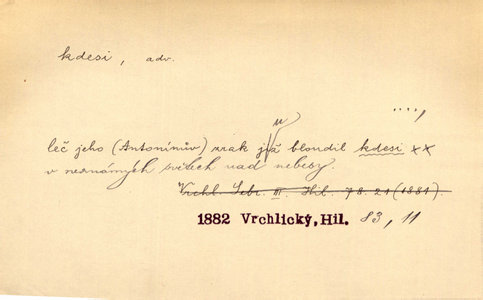 kdesi, adv.
....,
u
leč jeho (Antonínův) zrak již bloudil kdesi xx
v neznámých světech nad nebesy.
Vrchl. Sebr. III. Hil. 78. 21 (1881).
1882 Vrchlický, Hil. 83, 11